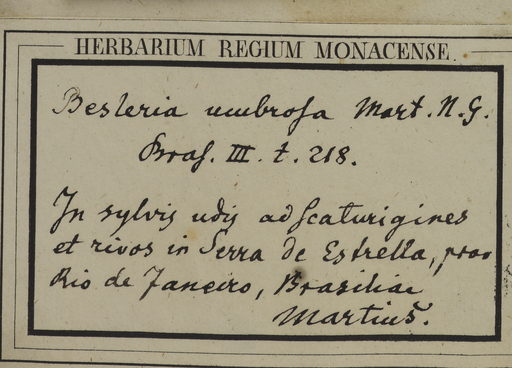 HERBARIUM REGIUM MONACENSE.
Besleria umbrosa Mart. N. G.
Bras. III. t. 218.
In sylvis udis ad scaturigines
et rivos in Serra de Estrella, prov
Rio de Janeiro, Brasiliae
Martius.